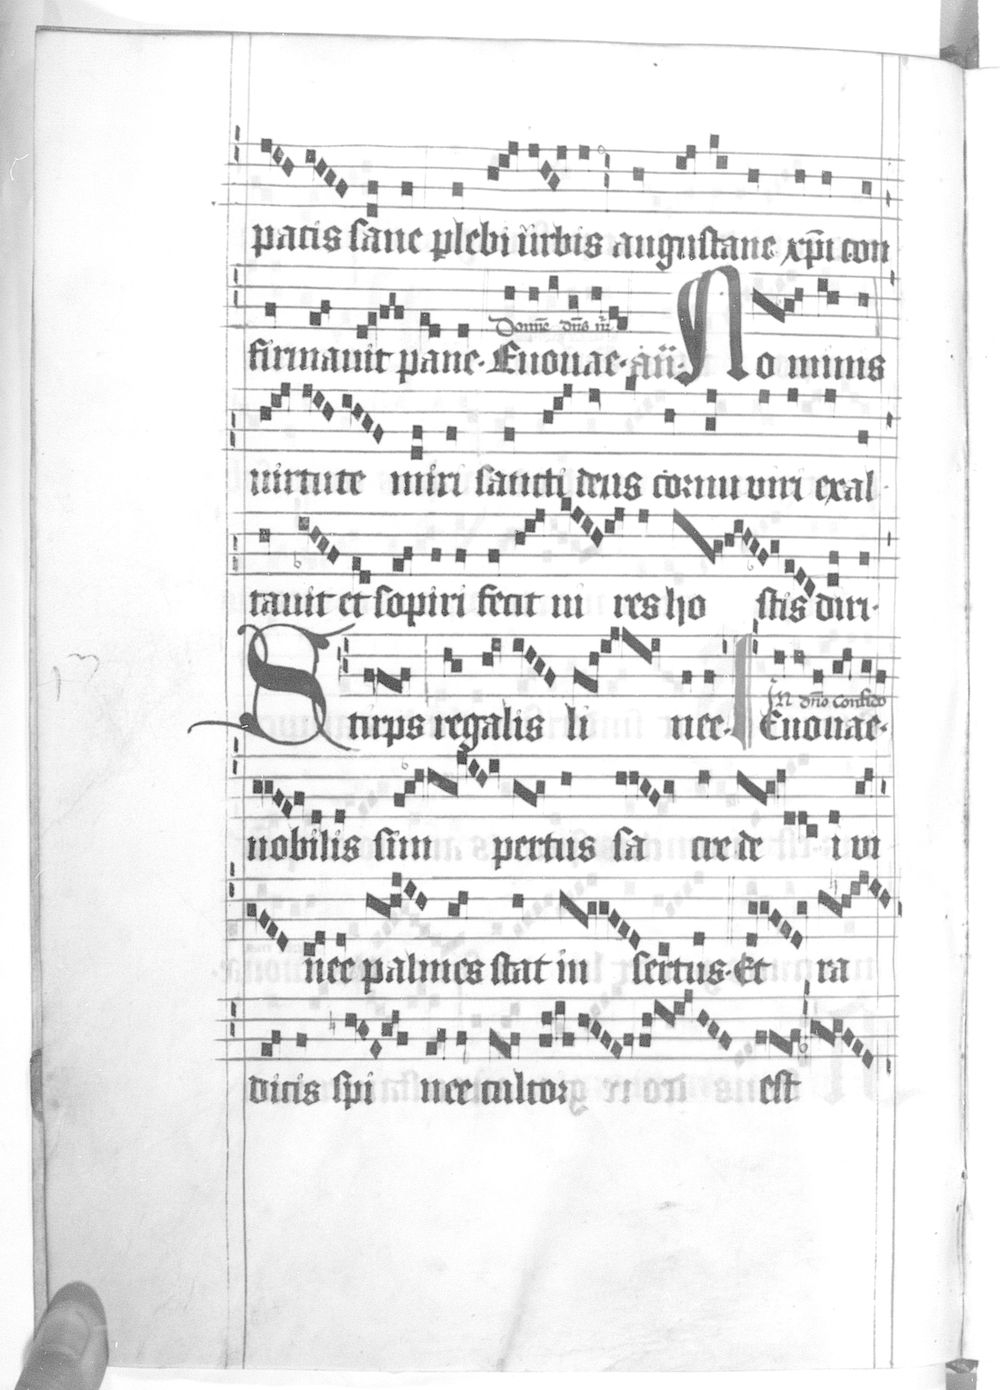 pacis sane plebi urbis augustane xp̄i con
firmavit pane. Euouae. Domine dn̄s nr̄ an̄. Nominis
virtute miri sancti deus cornu viri exal
tavit et sopiri fecit vi res ho stis diri.
Stirps regalis li nee. Euouae. In dn̄o confido
nobilis sim pertus sa cre de i vi
nee palmes stat in sertus. Et ra
dicis spi nee cultor est